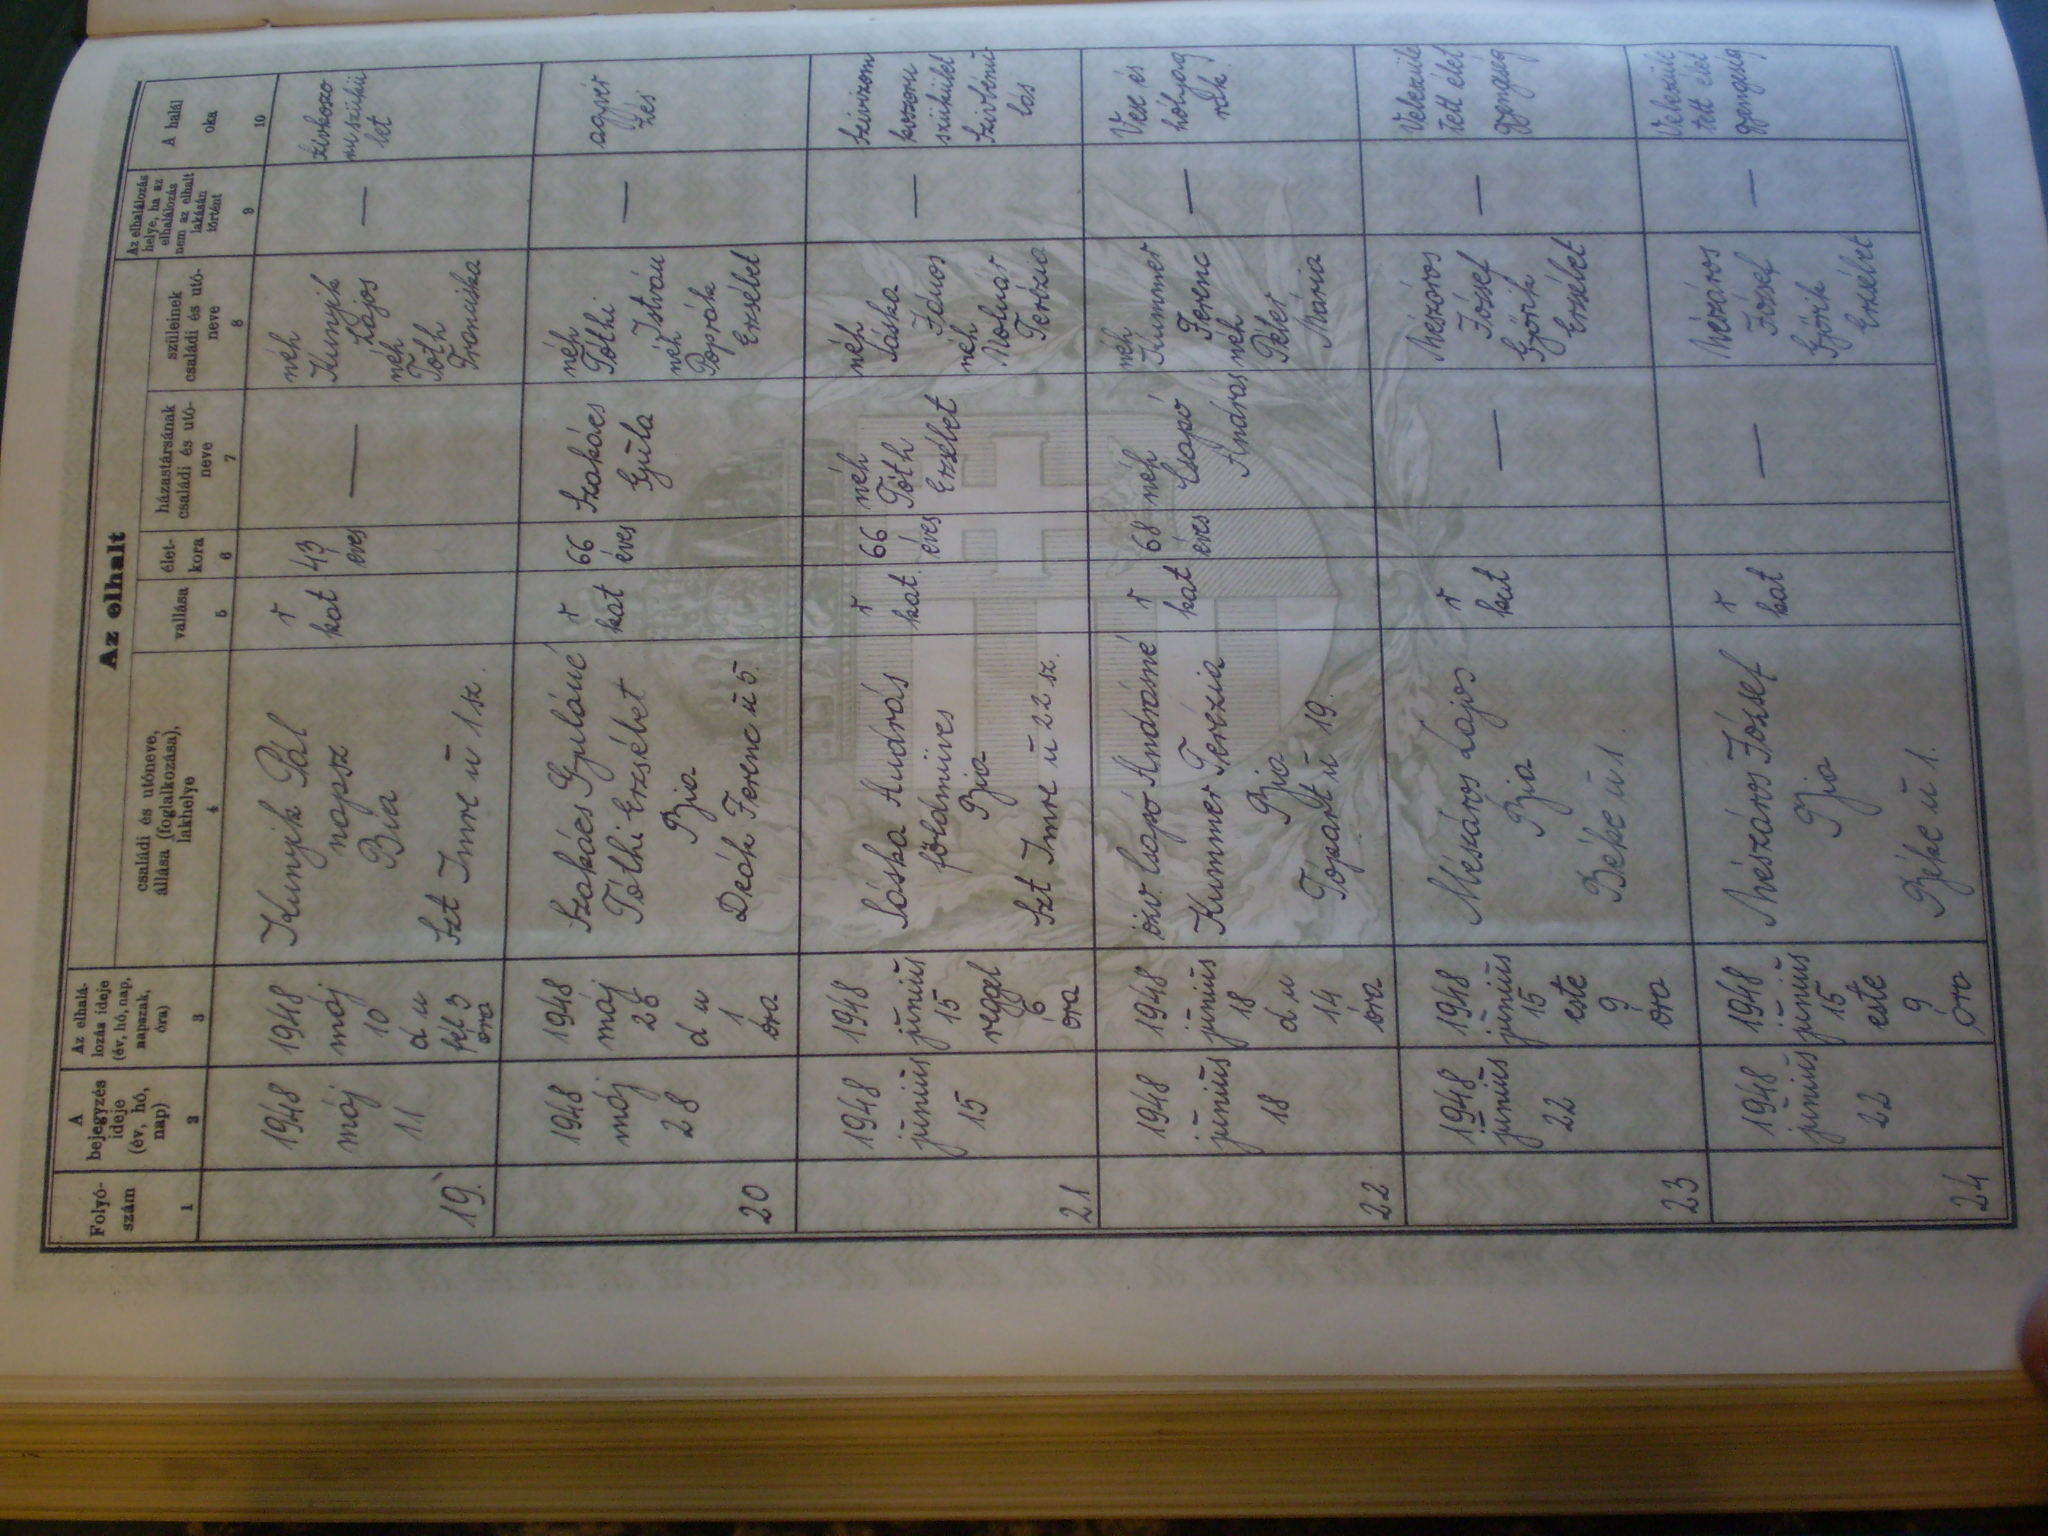 Az elhalt
Folyó-
szám
A
bejegyzés
ideje
(év, hó,
nap)
Az elhalá-
lozás ideje
(év, hó, nap,
napszak,
óra)
családi és utóneve,
állása (foglalkozása),
lakhelye
vallása
élet-
kora
házastársának
családi és utó-
neve
szüleinek
családi és utó-
neve
Az elhalálozás
helye, ha az
elhalálozás
nem az elhalt
lakásán
történt
A halál
oka
1
2
3
4
5
6
7
8
9
10
19.
1948
máj
11
1948
máj
10
d u
fél 3
óra
Kunyik Pál
napsz
Bia
Szt Imre u 1 sz.
r
kat
43
éves
—
néh
Kunyik
Lajos
néh
Tóth
Franciska
—
szívkoszo
rú szükü
let
20
1948
máj
28
1948
máj
26
d u
1
óra
Szakács Gyuláné
Tóthi Erzsébet
Bia
Deák Ferenc u 5.
r
kat
66
éves
Szakács
Gyula
néh
Tóthi
István
néh
Poprák
Erzsébet
—
agyvér
zés
21
1948
június
15
1948
június
15
reggel
6
óra
Sáska András
földmüves
Bia
Szt Imre u 22 sz.
r
kat.
66
éves
néh
Tóth
Erzsébet
néh
Sáska
János
néh
Molnár
Terézia
—
koszoru
szükület
Szivbénu
lás
22
1948
június
18
1948
június
18
d u
14
óra
özv. Csapó Andrásné
Kummer Terézia
Bia
Tópart u 19.
r
kat
68
éves
néh
Csapó
András
néh
Kummer
Ferenc
néh
Péter
Mária
—
Vese és
hólyag
rák.
23
1948
június
22
1948
június
15
este
9
óra
Mészáros Lajos
Bia
Béke u 1.
r
kat
—
Mészáros
József
Györik
Erzsébet
—
Veleszüle
tett élet
gyengeség
24
1948
június
22
1948
június
15
este
9
óra
Mészáros József
Bia
Béke u 1.
r
kat
—
Mészáros
József
Györik
Erzsébet
—
Veleszüle
tett élet
gyengeség